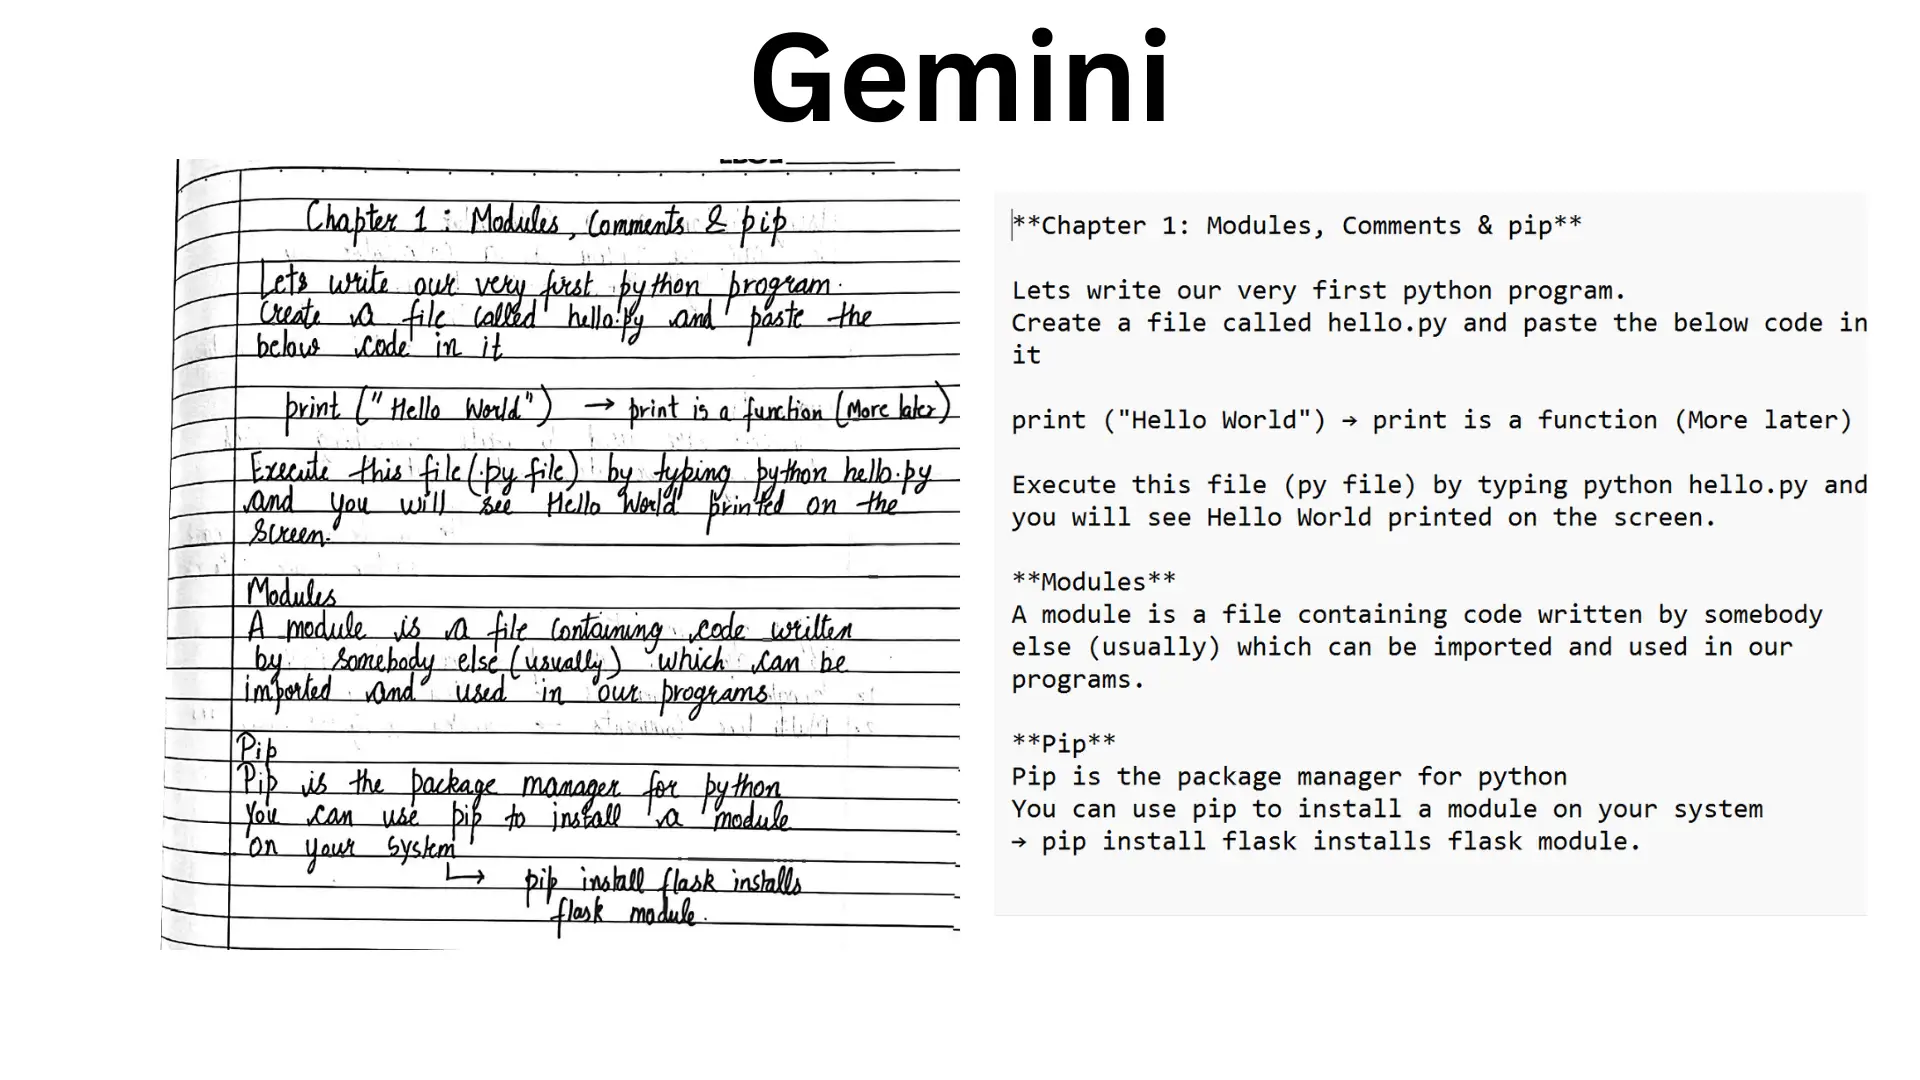 Gemini
Chapter 1 : Modules, Comments & pip
Lets write our very first python program.
Create a file called hello.py and paste the
below code in it
print ("Hello World") → print is a function (More later)
Execute this file (.py file) by typing python hello.py
and you will see Hello World printed on the
screen.
Modules
A module is a file containing code written
by somebody else (usually) which can be
imported and used in our programs
Pip
Pip is the package manager for python
You can use pip to install a module
on your system
↳ pip install flask installs
flask module.
**Chapter 1: Modules, Comments & pip**
Lets write our very first python program.
Create a file called hello.py and paste the below code in
it
print ("Hello World") → print is a function (More later)
Execute this file (py file) by typing python hello.py and
you will see Hello World printed on the screen.
**Modules**
A module is a file containing code written by somebody
else (usually) which can be imported and used in our
programs.
**Pip**
Pip is the package manager for python
You can use pip to install a module on your system
→ pip install flask installs flask module.